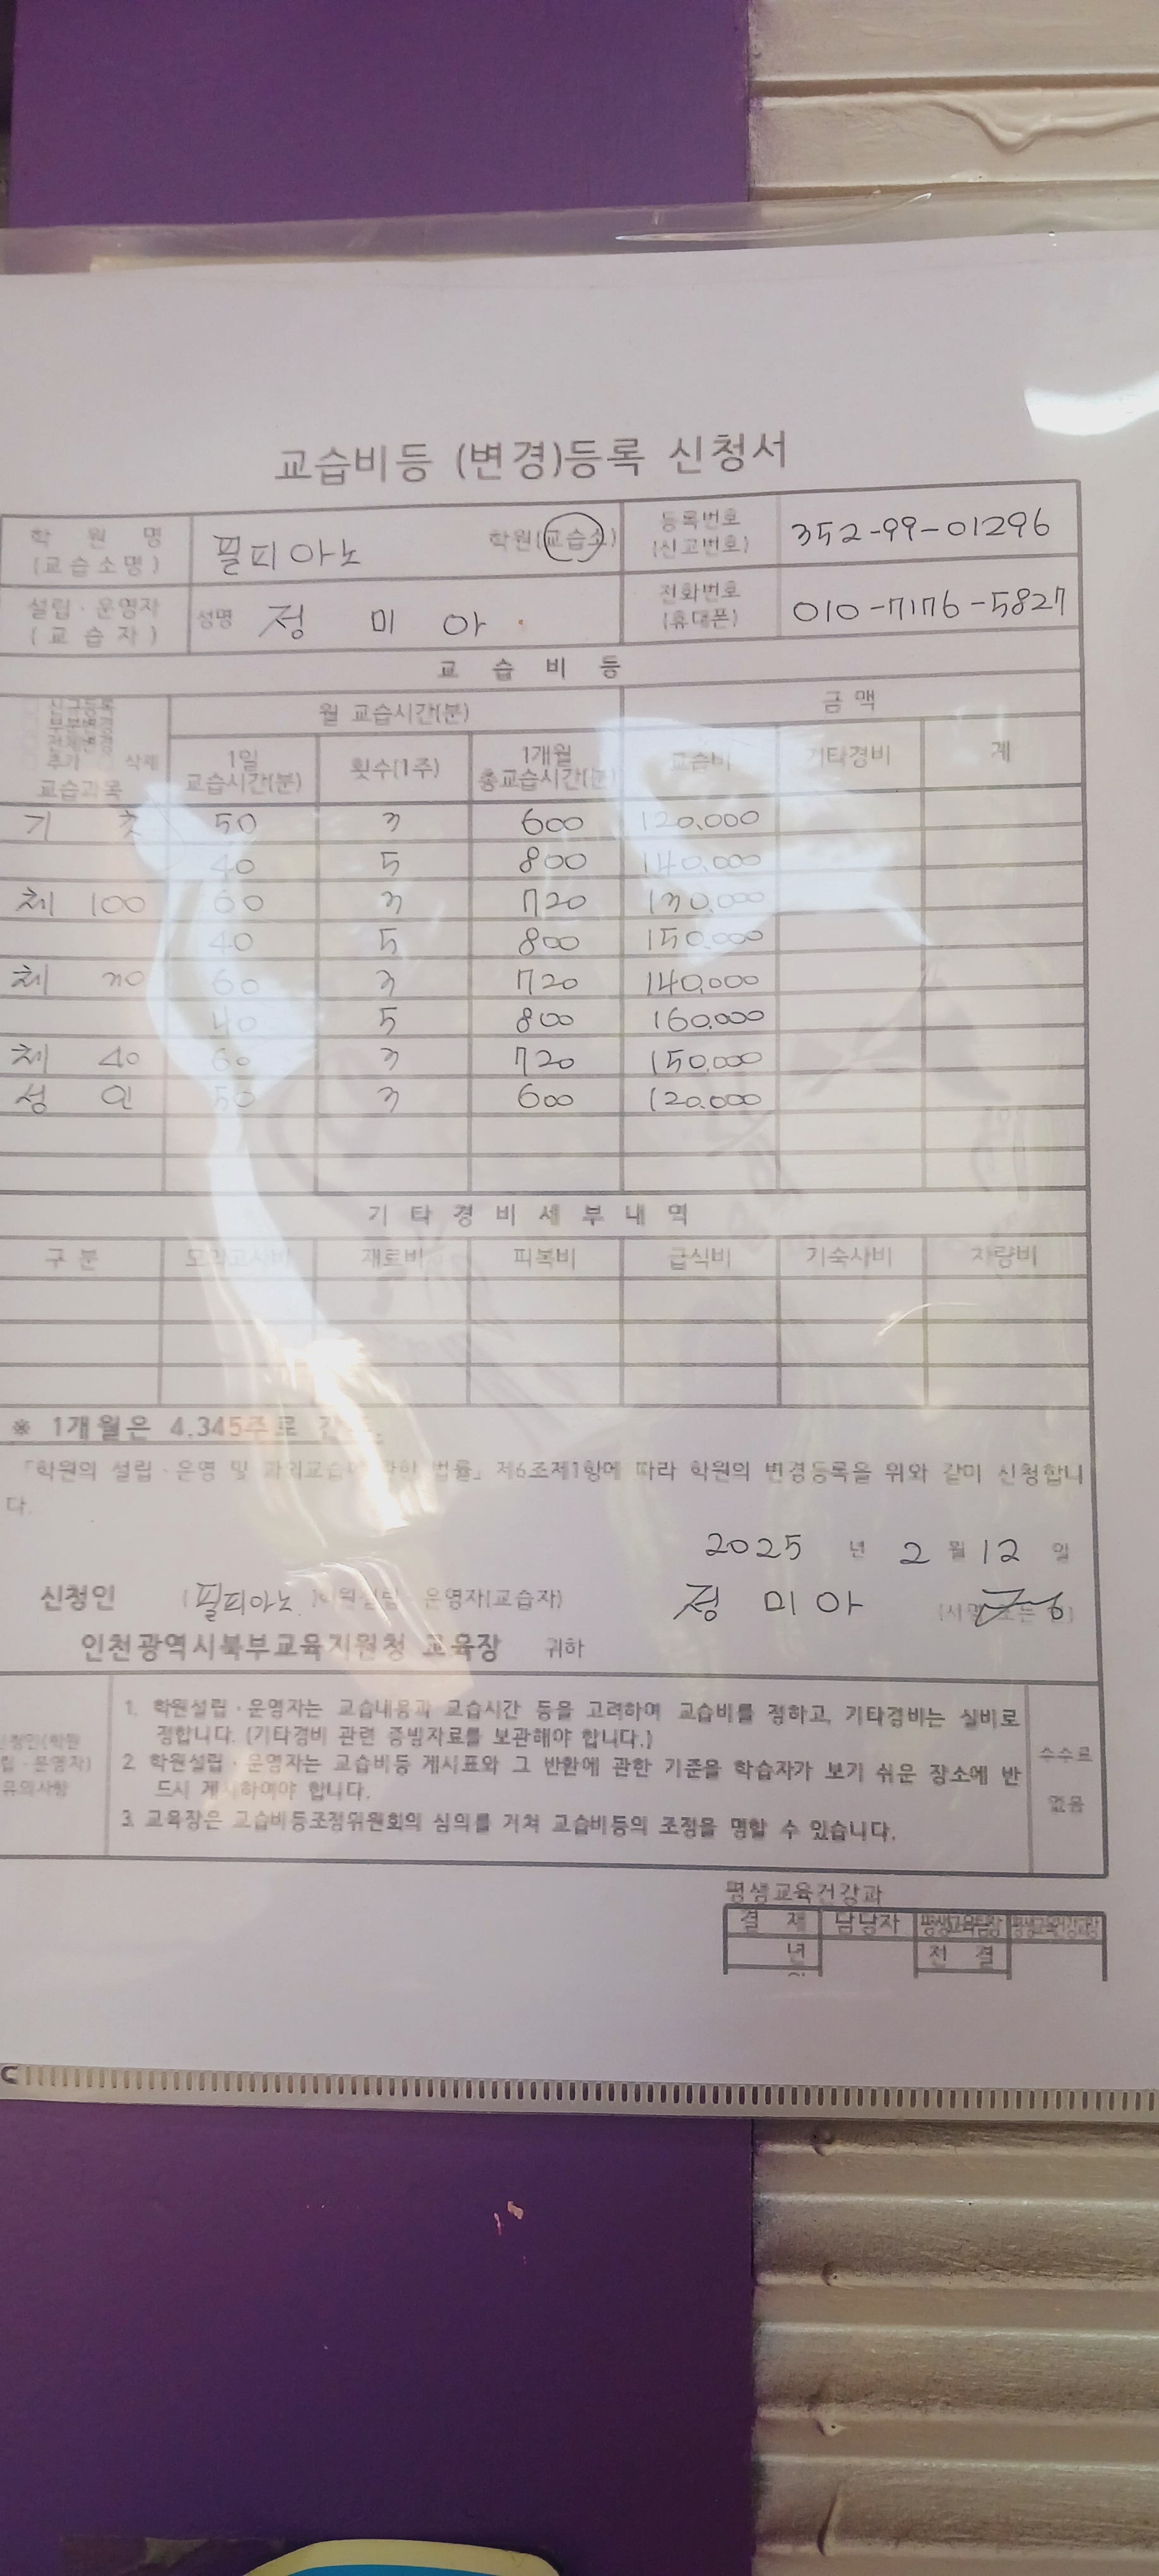 교습비등 (변경)등록 신청서
학 원 명 (교습소명) 필피아노 학원(교습소) 등록번호 (신고번호) 352-99-01296
설립·운영자 (교 습 자) 성명 정 미 아 전화번호 (휴대폰) 010-7176-5827
교 습 비 등
신규등록
부분변경
전체변경
추가 삭제
교습과목
월 교습시간(분) 금 액
1일 교습시간(분) 횟수(1주) 1개월 총교습시간(분) 교습비 기타경비 계
기 초 50 3 600 120,000
40 5 800 140,000
체 100 60 3 720 130,000
40 5 800 150,000
체 30 60 3 720 140,000
40 5 800 160,000
체 40 60 3 720 150,000
성 인 50 3 600 120,000
기 타 경 비 세 부 내 역
구 분 모의고사비 재료비 피복비 급식비 기숙사비 차량비
※ 1개월은 4.345주로
「학원의 설립·운영 및 과외교습에 관한 법률」 제6조제1항에 따라 학원의 변경등록을 위와 같이 신청합니
다.
2025 년 2 월 12 일
신청인 (필피아노 )학원설립·운영자(교습자) 정 미 아 (서명 또는 인)
인천광역시북부교육지원청 교육장 귀하
신청인(학원
설립·운영자)
유의사항
1. 학원설립·운영자는 교습내용과 교습시간 등을 고려하여 교습비를 정하고, 기타경비는 실비로
정합니다. (기타경비 관련 증빙자료를 보관해야 합니다.)
2. 학원설립·운영자는 교습비등 게시표와 그 반환에 관한 기준을 학습자가 보기 쉬운 장소에 반
드시 게시하여야 합니다.
3. 교육장은 교습비등조정위원회의 심의를 거쳐 교습비등의 조정을 명할 수 있습니다.
수수료
없음
평생교육건강과
결 재 담당자 평생교육팀장 평생교육건강과장
년 전 결